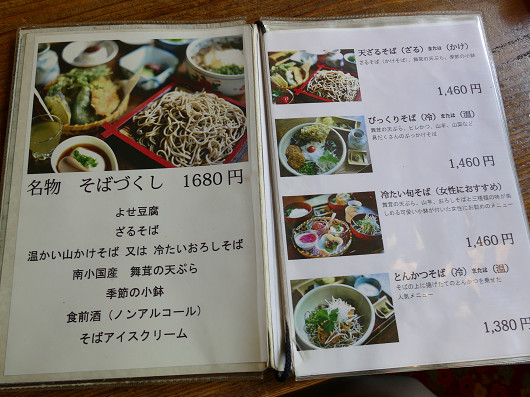 名物 そばづくし 1680円
よせ豆腐
ざるそば
温かい山かけそば 又は 冷たいおろしそば
南小国産 舞茸の天ぷら
季節の小鉢
食前酒（ノンアルコール）
そばアイスクリーム
天ざるそば（ざる）または（かけ）
ざるそば（かけそば）、舞茸の天ぷら、季節の小鉢
1,460円
びっくりそば（冷）または（温）
舞茸の天ぷら、ヒレかつ、山芋、山菜など
具だくさんのぶっかけそば
1,460円
冷たい旬そば（女性におすすめ）
舞茸の天ぷら、山芋、おろしそばと三種類の味が楽
しめる可愛い小鉢が付いた女性にお勧めのメニュー
1,460円
とんかつそば（冷）または（温）
そばの上に揚げたてのとんかつを乗せた
人気メニュー
1,380円